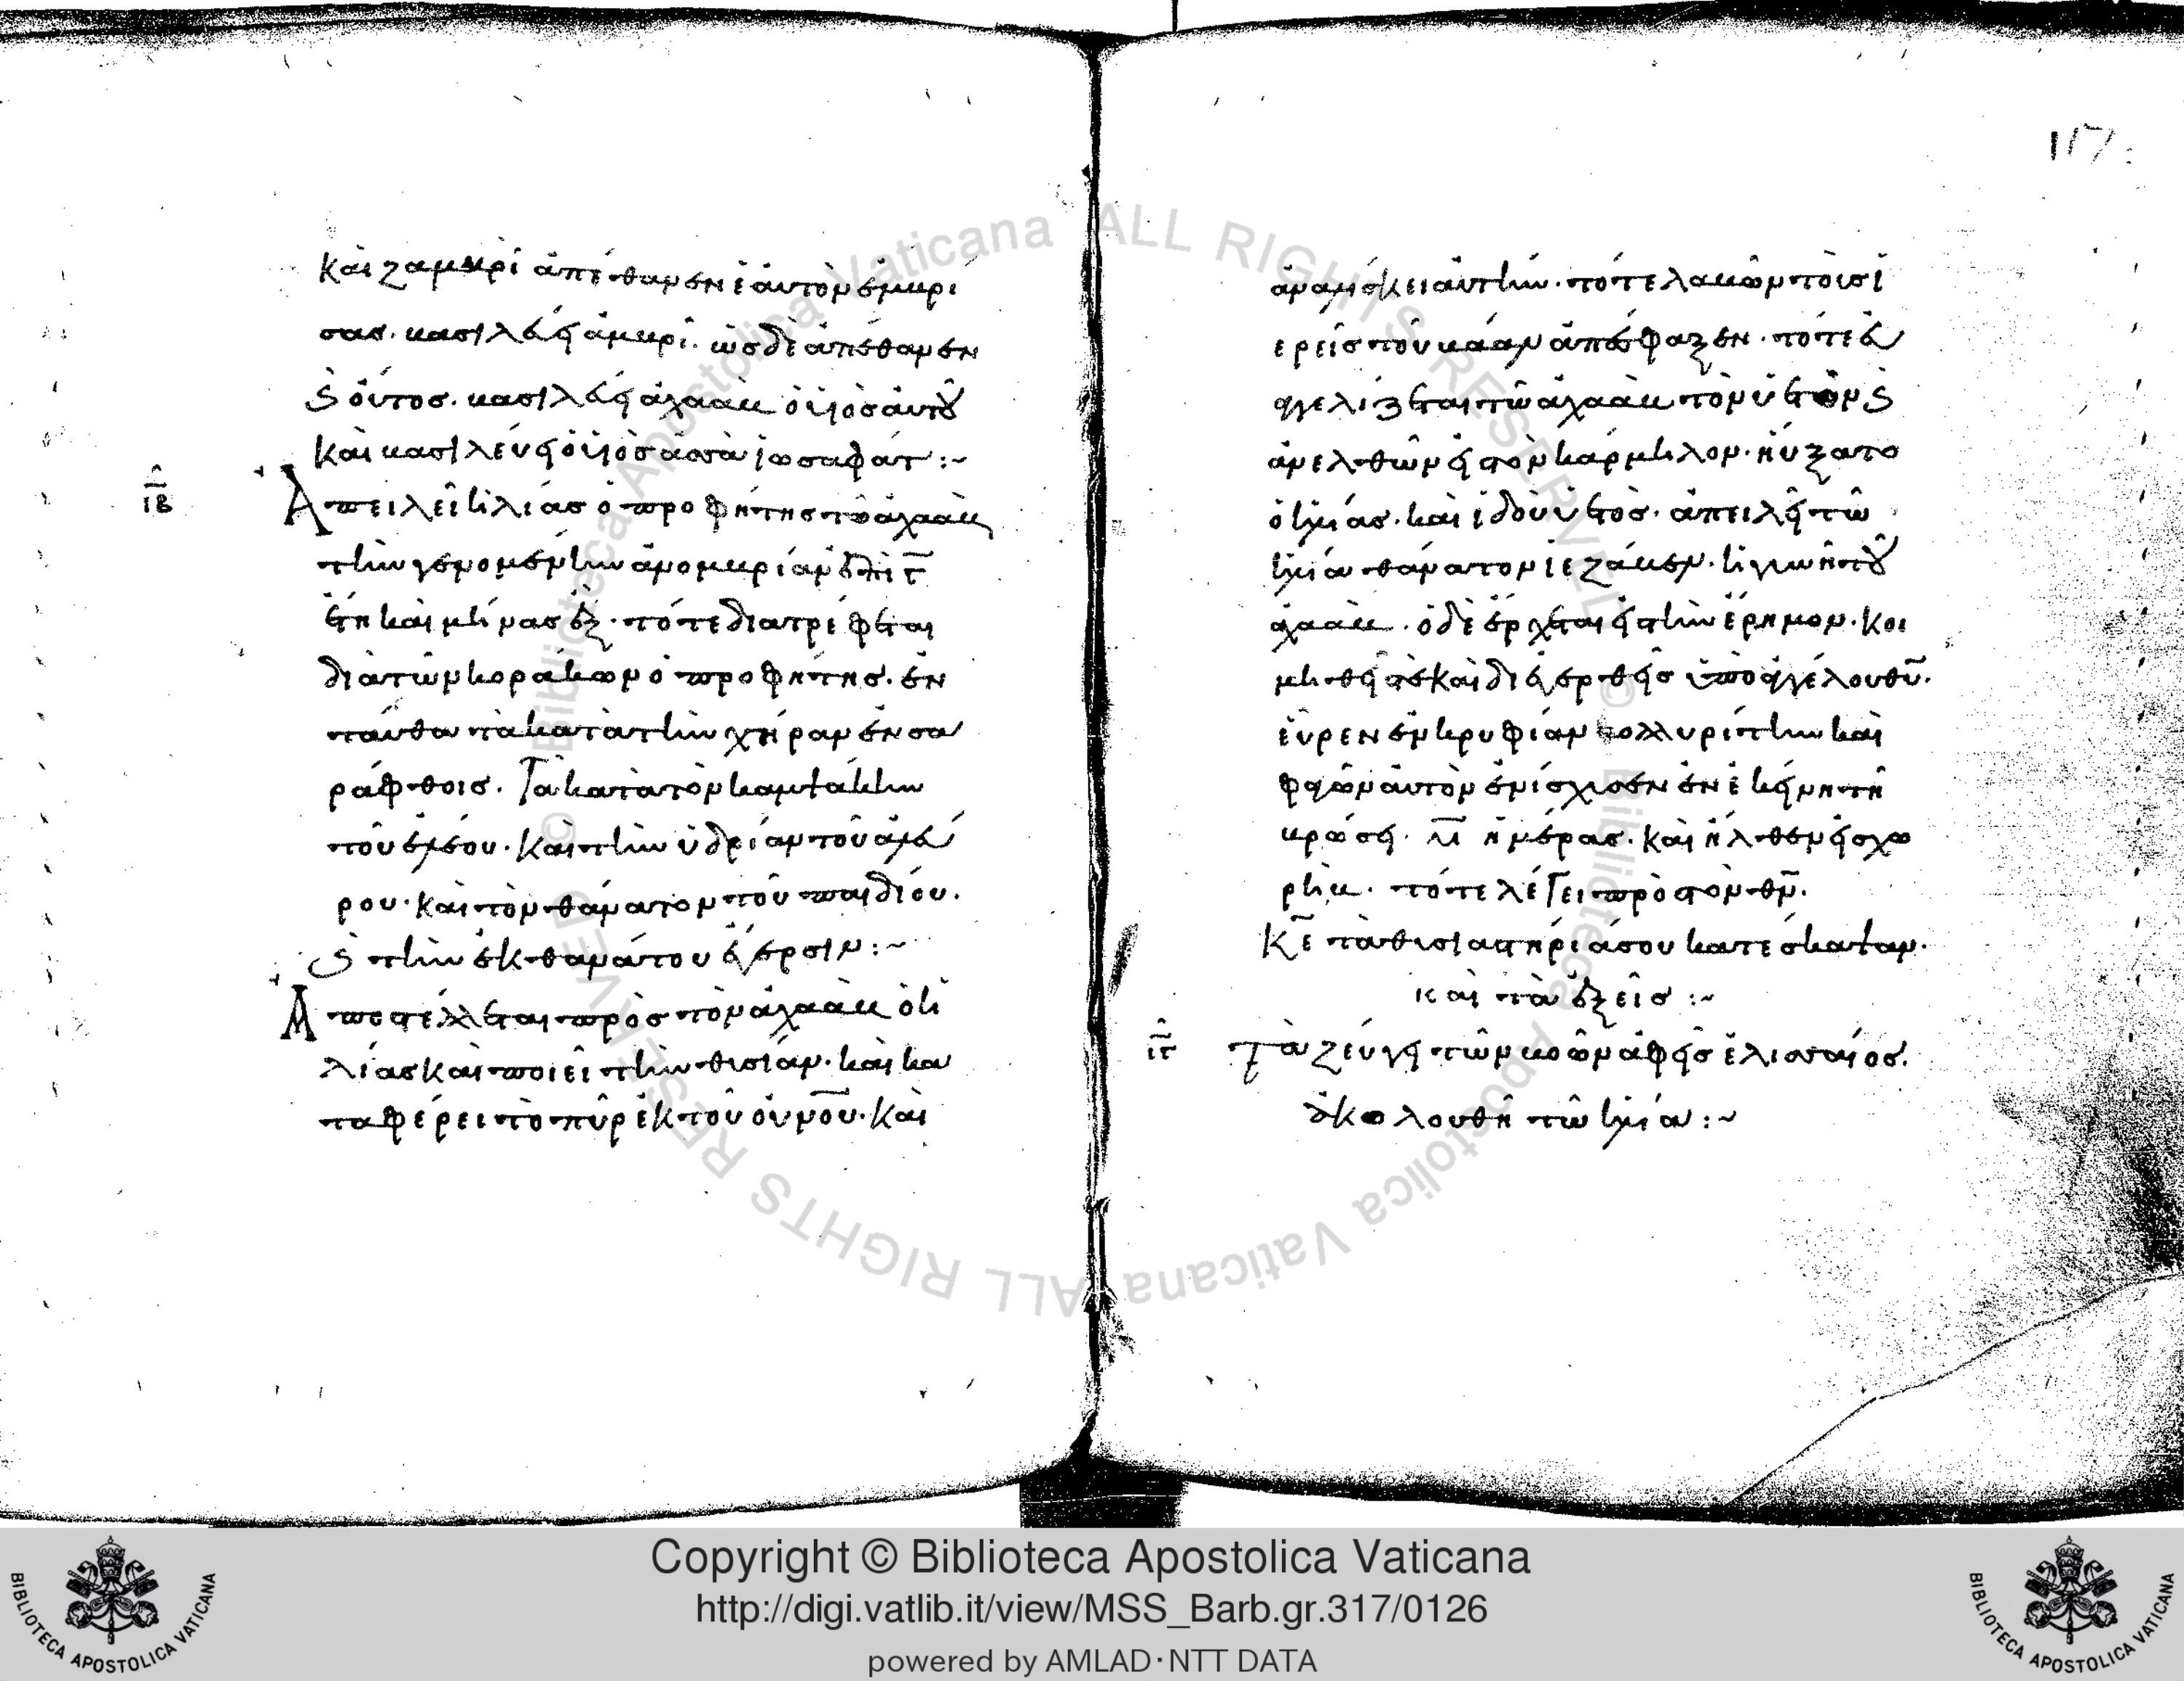 καὶ ζαμβρὶ ἀπέθανεν ἑαυτὸν ἐμπρί
σας. βασιλεύει ἀμβρί. ὡς δὲ ἀπέθανεν
καὶ οὗτος. βασιλεύει ἀχαὰβ ὁ υἱὸς αὐτοῦ
καὶ βασιλεύει ὁ υἱὸς ἀσσὰ ἰωσαφάτ :~
ιβ
Ἀπειλεῖ ἠλίας ὁ προφήτης τῶ ἀχαὰβ
τὴν γενομένην ἀνομβρίαν ἐπὶ γ
ἔτη καὶ μήνας ἕξ. τότε διατρέφεται
διὰ τῶν κοράκων ὁ προφήτης. ἐν
ταῦθα τὰ κατὰ τὴν χήραν ἐν σα
ράφθοις. Τὰ κατὰ τὸν καμψάκην
τοῦ ἐλέου. Καὶ τὴν ὑδρίαν τοῦ ἀλεύ
ρου. καὶ τὸν θάνατον τοῦ παιδίου.
καὶ τὴν ἐκ θανάτου ἔγερσιν :~
Ἀποστέλλεται πρὸς τὸν ἀχαὰβ ὁ ἠ
λίας καὶ ποιεῖ τὴν θυσίαν. καὶ κα
ταφέρει τὸ πῦρ ἐκ τοῦ οὐνοῦ. καὶ
117
ἀναλίσκει αὐτήν. τότε λαβὼν τοὺς ἱ
ερεῖς τοῦ βάαλ ἀπέσφαξεν. τότε εὐ
αγγελίζεται τῶ ἀχαὰβ τὸν ὑετόν καὶ
ἀνελθὼν εἰς τὸν κάρμηλον. ηὔξατο
ὁ ἠλίας. καὶ ἰδοὺ ὑετός. ἀπειλεῖ τῶ
ἠλία θάνατον ἰεζάβελ. ἡ γυνὴ τοῦ
ἀχαάβ. ὁ δὲ ἔρχεται εἰς τὴν ἔρημον. κοι
μηθείς τε καὶ διεγερθεὶς ὑπὸ ἀγγέλου θυ.
εὗρεν ἐγκρυφίαν κολλυρίτην καὶ
φαγὼν αὐτὸν ἐνίσχυσεν ἐν ἐκείνη τῆ
βρώσει. μ ἡμέρας. καὶ ἦλθεν εἰς χω
ρήβ. τότε λέγει πρὸς τὸν θν.
Κε τὰ θυσιαστήριά σου κατέσκαψαν.
καὶ τὰ ἑξεῖς :~
ιγ
τὰ ζεύγη τῶν βοῶν ἀφεὶς ἐλισσαίος.
ἀκολουθῆ τῶ ἠλία :~
Copyright © Biblioteca Apostolica Vaticana
http://digi.vatlib.it/view/MSS_Barb.gr.317/0126
powered by AMLAD·NTT DATA
BIBLIOTECA APOSTOLICA VATICANA
BIBLIOTECA APOSTOLICA VATICANA
© Biblioteca Apostolica Vaticana ALL RIGHTS RESERVED
© Biblioteca Apostolica Vaticana ALL RIGHTS RESERVED